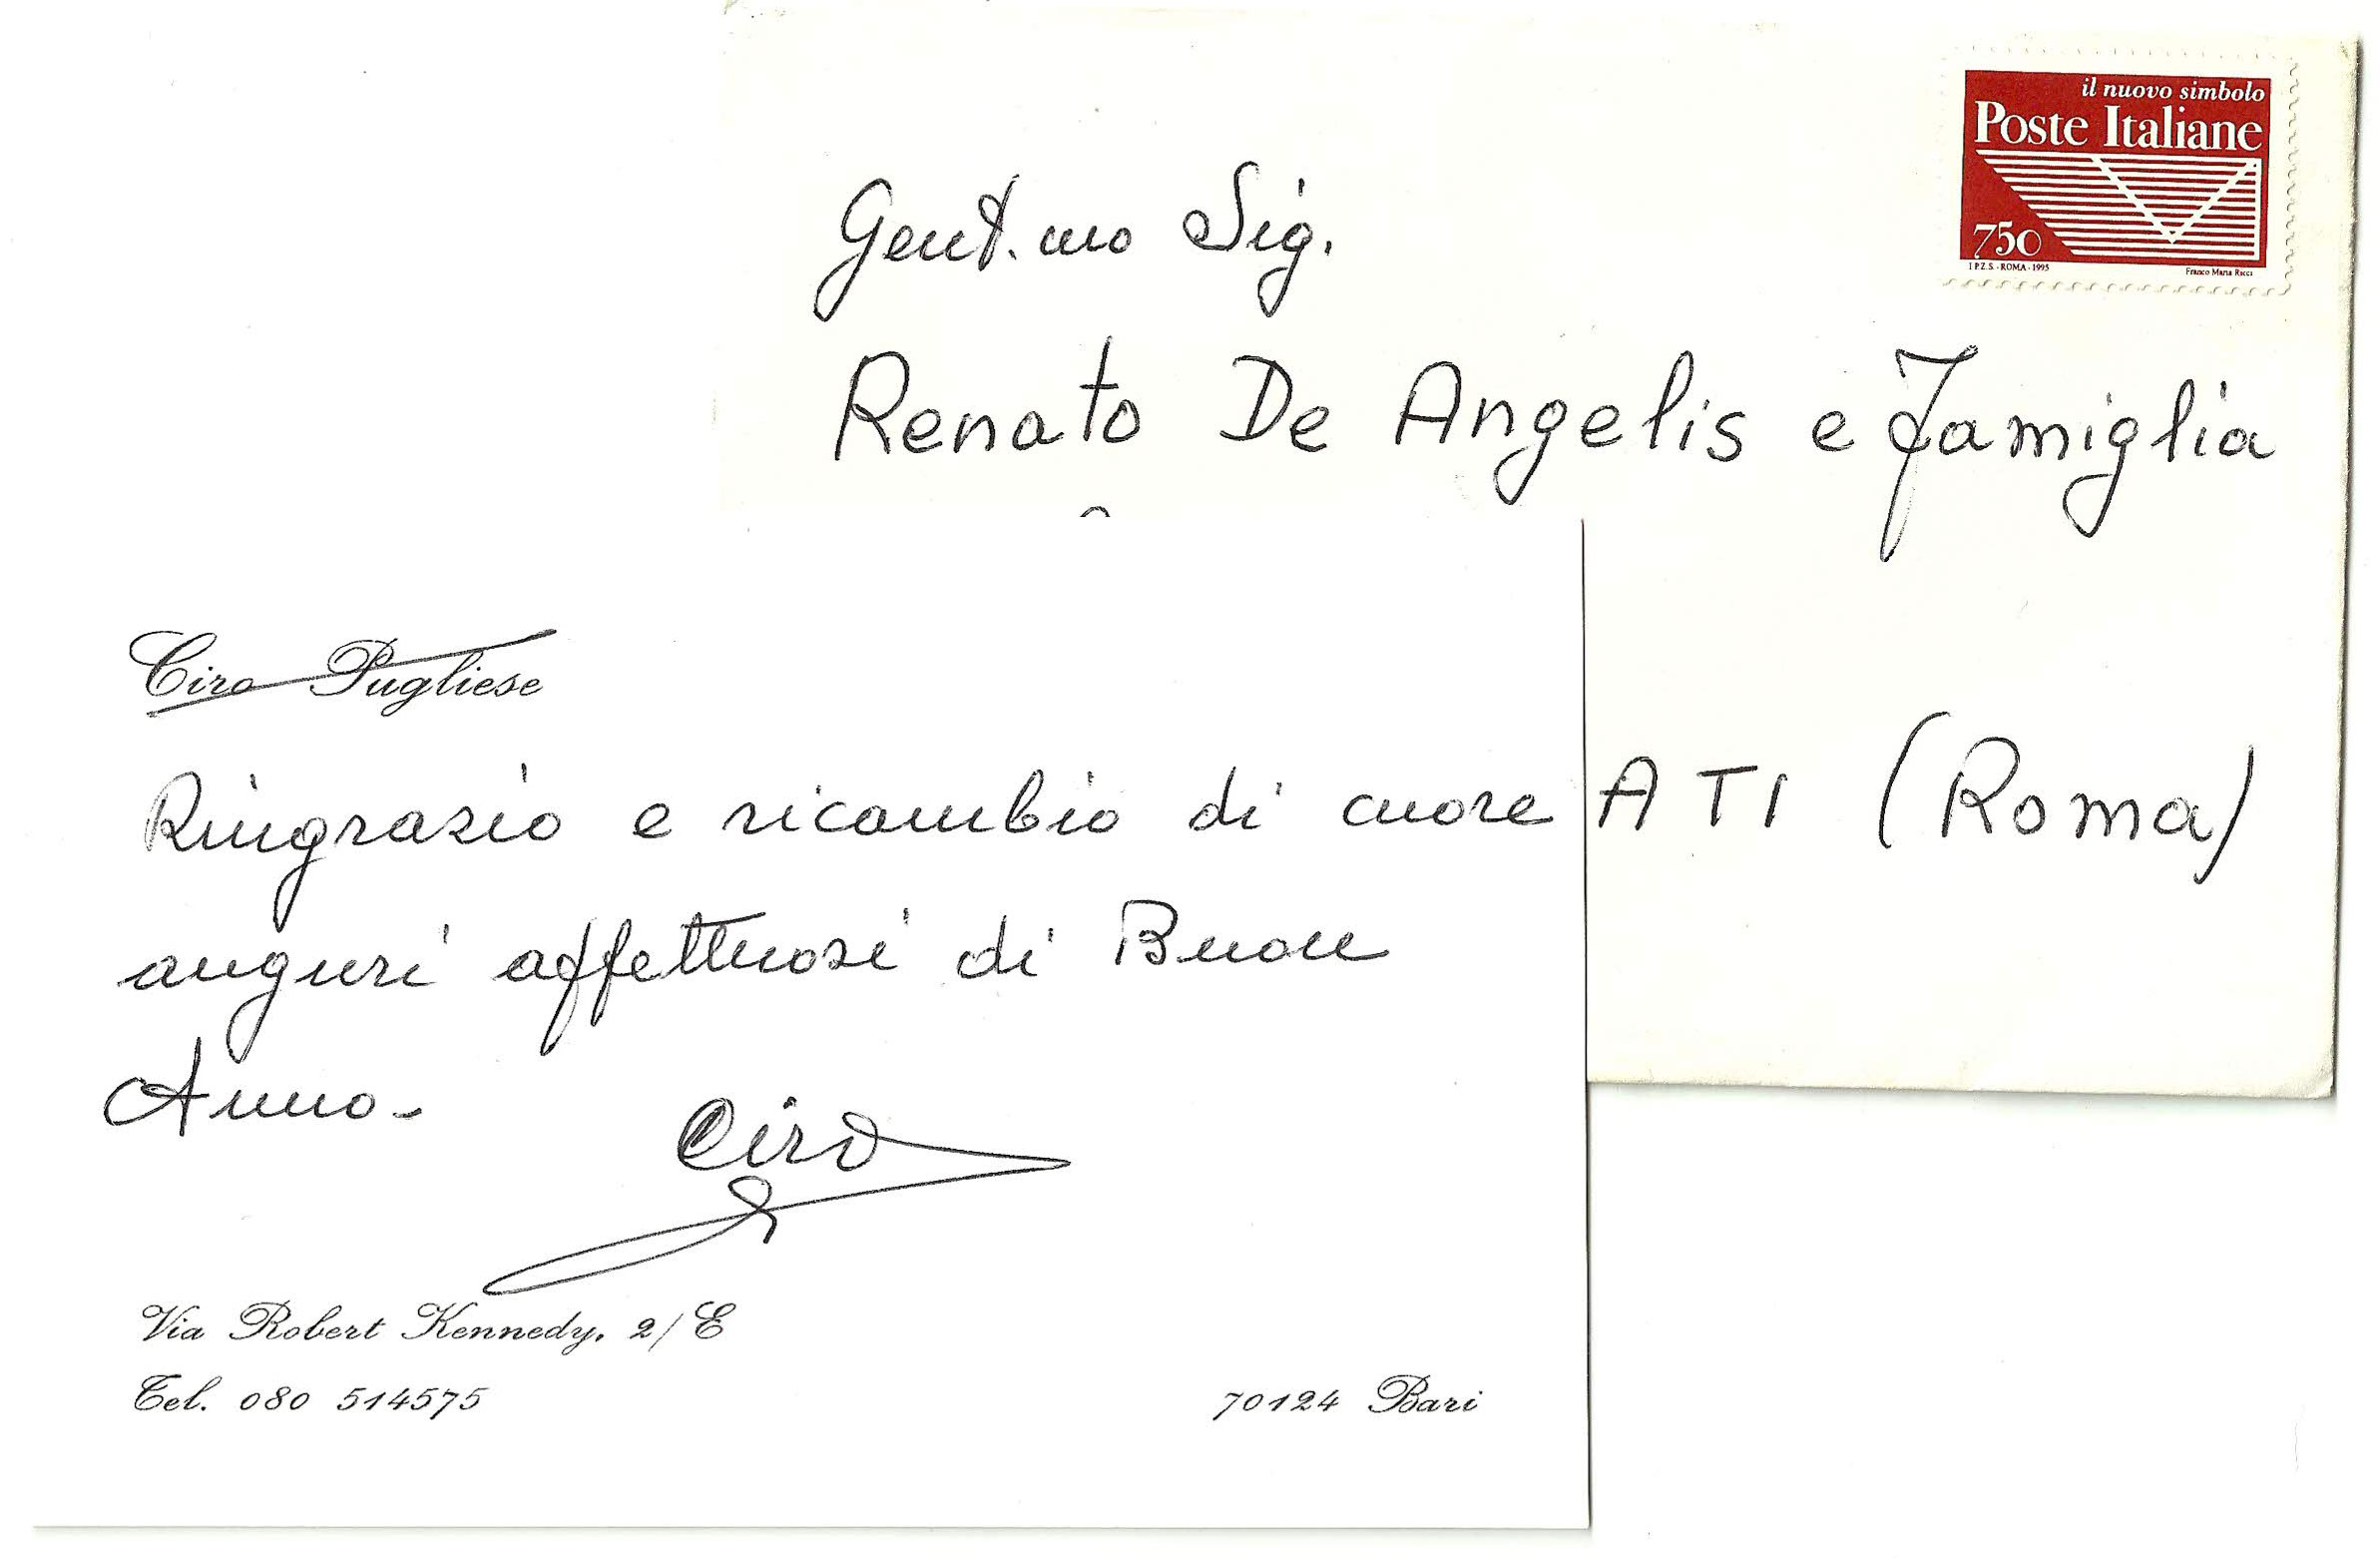 il nuovo simbolo
Poste Italiane
750
I.P.Z.S. - ROMA - 1995 Franco Maria Ricci
Gent.mo Sig.
Renato De Angelis e famiglia
ATI (Roma)
Ciro Pugliese
Ringrazio e ricambio di cuore
auguri affettuosi di Buon
Anno.
Ciro
Via Robert Kennedy, 2/E
Tel. 080 514575
70124 Bari